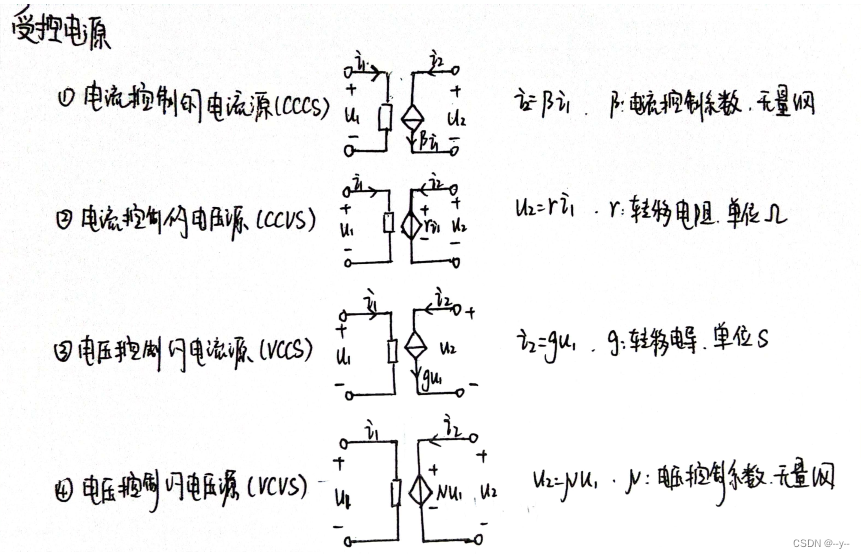 受控电源
① 电流控制的电流源(CCCS) i₁ i₂ + u₁ - βi₁ + u₂ - i₂=βi₁. β:电流控制系数.无量纲
② 电流控制的电压源(CCVS) i₁ i₂ + u₁ - + ri₁ - + u₂ u₂=ri₁. r:转移电阻.单位Ω
③ 电压控制的电流源(VCCS) i₁ i₂ + u₁ - gu₁ + u₂ - i₂=gu₁. g:转移电导.单位S
④ 电压控制的电压源(VCVS) i₁ i₂ + u₁ - + μu₁ - + u₂ - u₂=μu₁. μ:电压控制系数.无量纲
CSDN @--y--